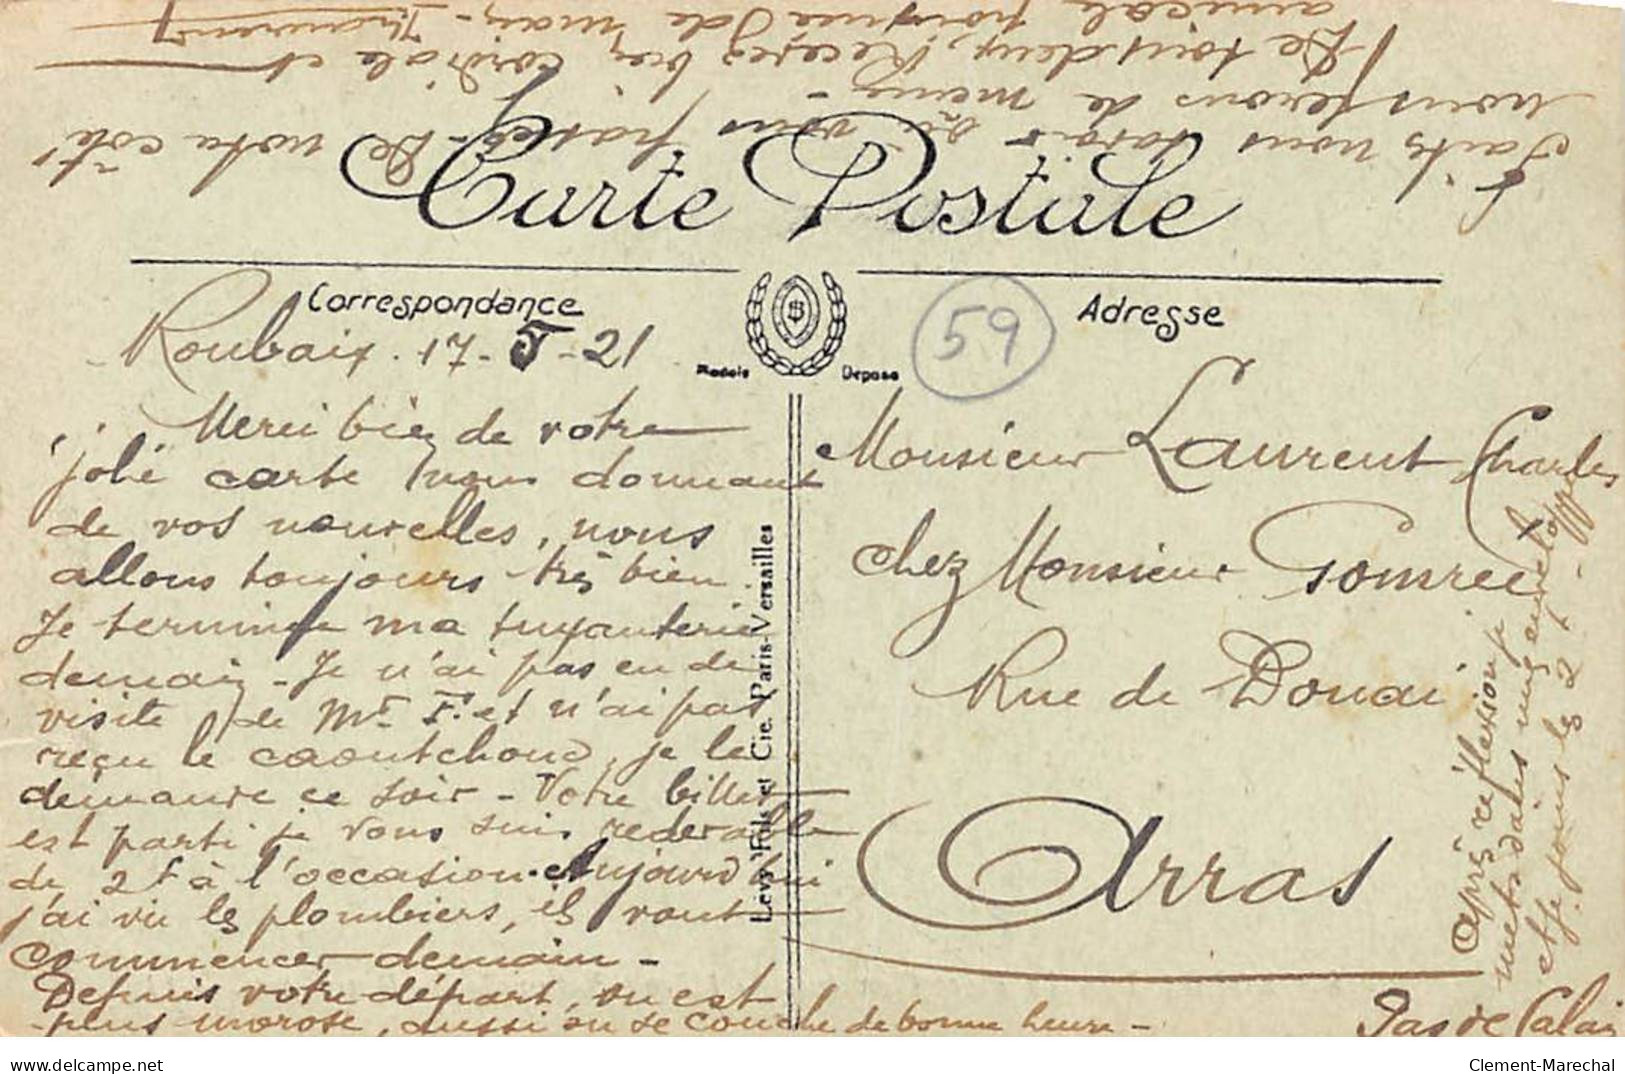 Carte Postale
Correspondance
Adresse
59
Modèle Déposé
Lévy Fils et Cie. Paris-Versailles
Roubaix. 17-5-21
Merci bien de votre
jolie carte nous donnant
de vos nouvelles, nous
allons toujours très bien.
Je termine ma tuyauterie
demain - Je n'ai pas eu de
visite de Mr F. et n'ai pas
reçu le caoutchouc, je le
demande ce soir - Votre billet
est parti je vous suis redevable
de 2f à l'occasion. Aujourd'hui
j'ai vu les plombiers, ils vont
commencer demain -
Depuis votre départ, on est
plus morose, aussi on se couche de bonne heure -
Faites nous savoir où vous passez - De notre côté
nous ferons de même -
De tous deux, Recevez bien cordiale et
amicale poignée de main -
Monsieur Laurent Charles
chez Monsieur Gomrée
Rue de Douai
Arras
Pas de Calais
après réflexion je
mets dans une enveloppe
et je joins les 2f -
Clement-Marechal
delcampe.net